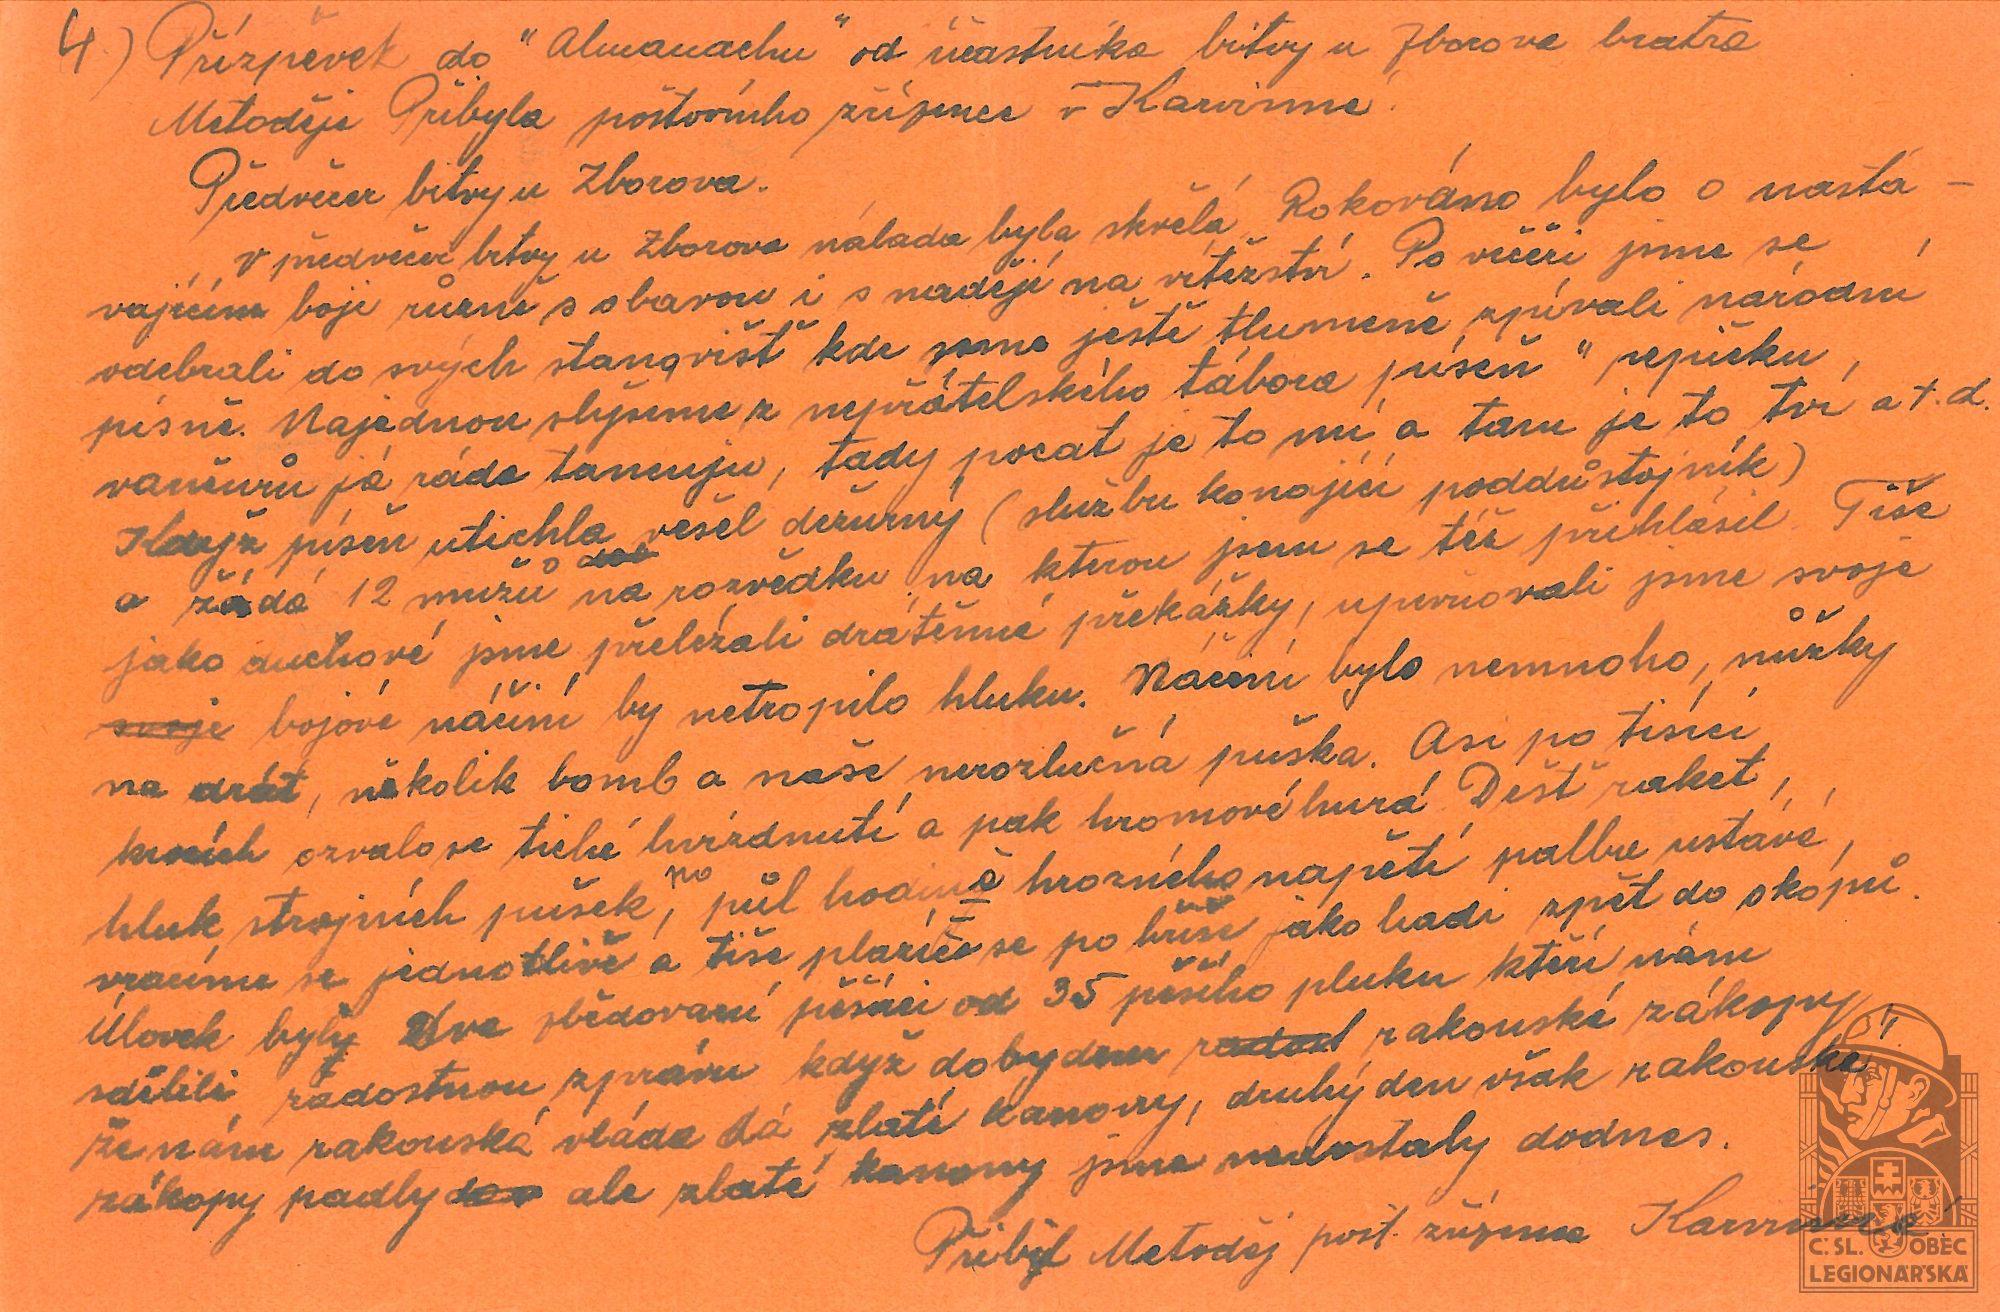 4.) Přízpěvek do "Almanachu" od účastníka bitvy u Zborova bratra
Metoděje Přibyla poštovního zřízence v Karvinné.
Předvečer bitvy u Zborova.
V předvečer bitvy u Zborova nálada byla skvělá. Rokováno bylo o nastá-
vajícím boji různě s obavou i s nadějí na vítězství. Po večeři jsme se
odebrali do svých stanovišť kde jsme ještě tlumeně zpívali národní
písně. Najednou slyšíme z nepřátelského tábora píseň "řepičku,
vančuru já ráda tancuju, tady pocat je to mí a tam je to tví a t.d.
Když píseň utichla vešel dežurný (službu konající poddůstojník)
a žádá 12 mužů na rozvědku na kterou jsem se též přihlásil. Tiše
jako duchové jsme přelézali drátěnné překážky, upevňovali jsme svoje
svoje bojové náčiní by netropilo hluku. Náčiní bylo nemnoho, nůžky
na drát, několik bomb a naše nerozlučná puška. Asi po tisíci
krocích ozvalo se tiché hvízdnutí a pak hromové hurá. Déšť raket,
hluk strojních pušek, po půl hodině hrozného napětí palba ustává,
vracíme se jednotlivě a tiše plazíce se po břiše jako hadi zpět do okópů.
Úlovek byly Dva sbědovaní pěšáci od 35 pěšího pluku kteří nám
sdělili radostnou zprávu když dobydem rakouské zákopy,
že nám rakouská vláda dá zlaté kanony, druhý den však rakouské
zákopy padly ale zlaté kanony jsme nedostaly dodnes.
Přibyl Metoděj pošt. zřízenec Karvinná
Č. SL. OBEC
LEGIONÁŘSKÁ